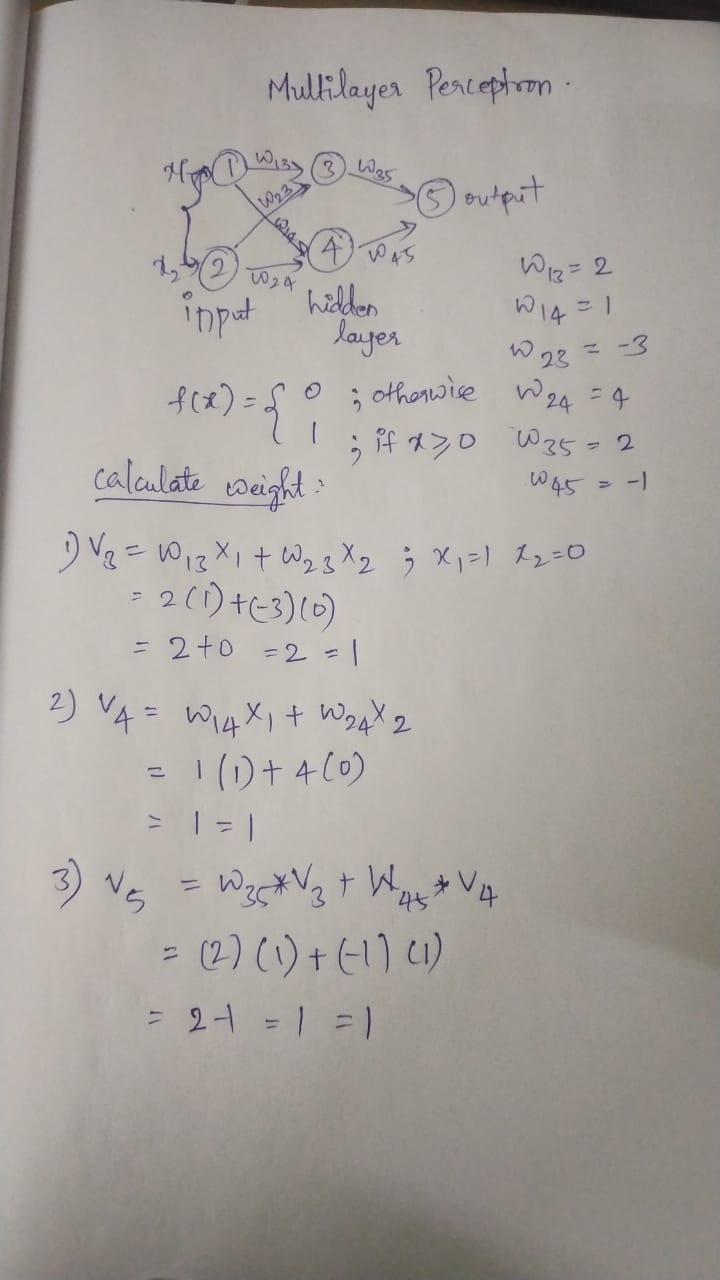 Multilayer Perceptron.
x₁ 1 W₁₃ 3 W₃₅
W₂₃ 5 output
W₁₄
x₂ 2 W₂₄ 4 W₄₅
input hidden
layer
W₁₃ = 2
W₁₄ = 1
W₂₃ = -3
W₂₄ = 4
W₃₅ = 2
W₄₅ = -1
f(x) = { 0 ; otherwise
1 ; if x ≥ 0
calculate weight :
1) V₃ = W₁₃ X₁ + W₂₃ X₂ ; x₁=1 x₂=0
= 2(1)+(-3)(0)
= 2+0 = 2 = 1
2) V₄ = W₁₄ X₁ + W₂₄ X₂
= 1(1)+ 4(0)
= 1 = 1
3) V₅ = W₃₅*V₃ + W₄₅*V₄
= (2)(1)+(-1)(1)
= 2-1 = 1 = 1